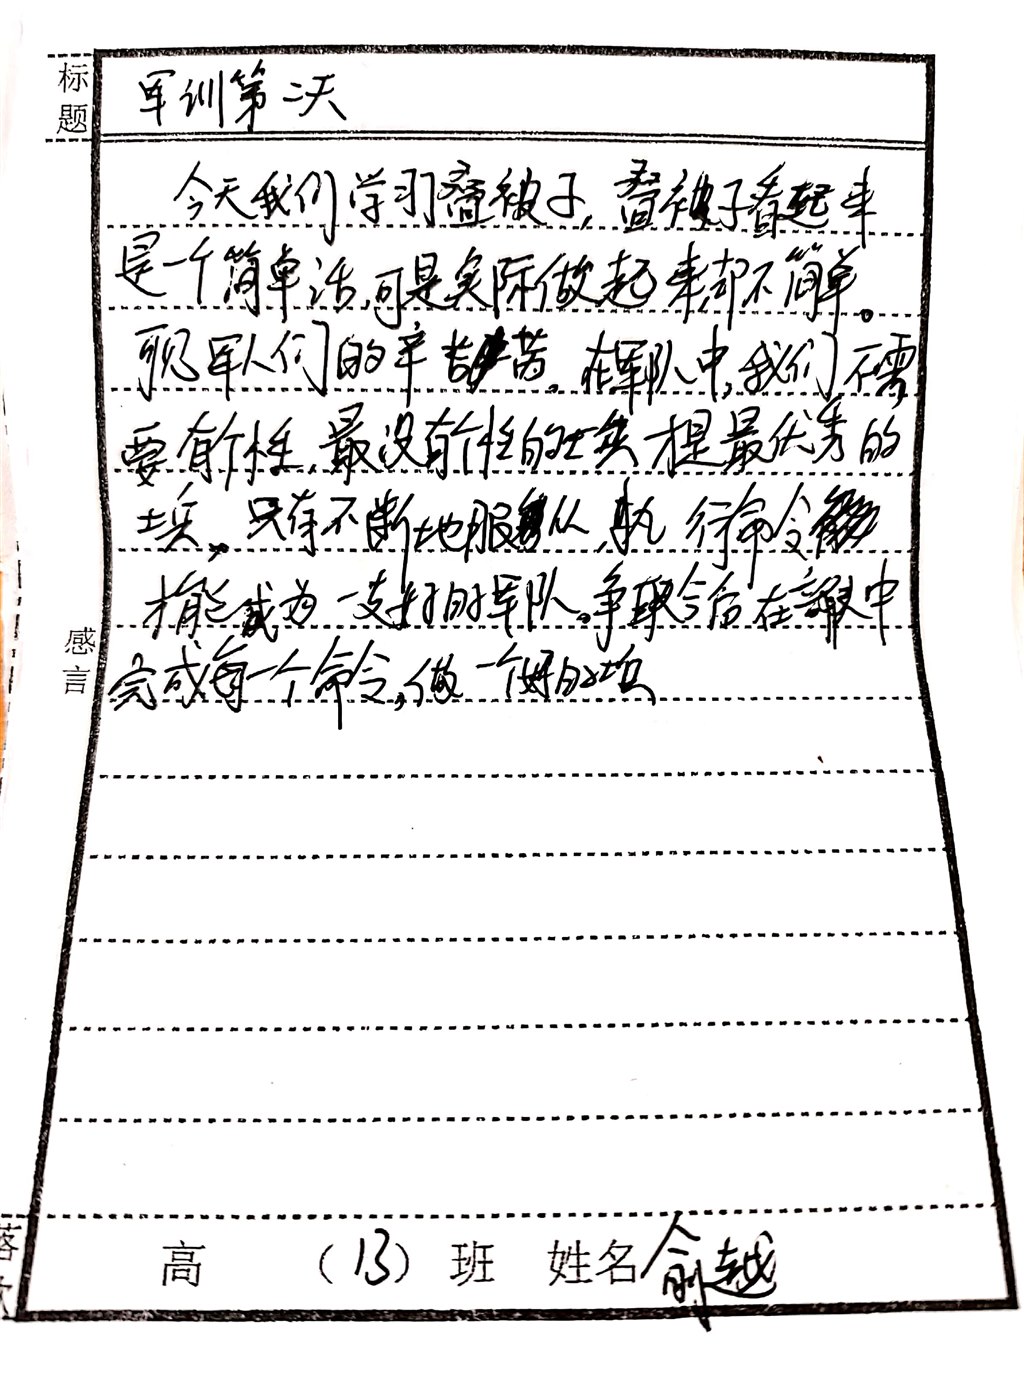 标题
军训第二天
今天我们学习叠被子，叠被子看起来
是一个简单活，可是实际做起来却不简单。
可见军人们的辛苦。在军队中，我们不需
要有个性，最没有个性的士兵才是最优秀的
士兵。只有不断地服从，执行命令
才能成为一支好的军队。争取今后在军训中
完成每一个命令，做一个好的士兵
感言
落款
高（13）班 姓名俞越